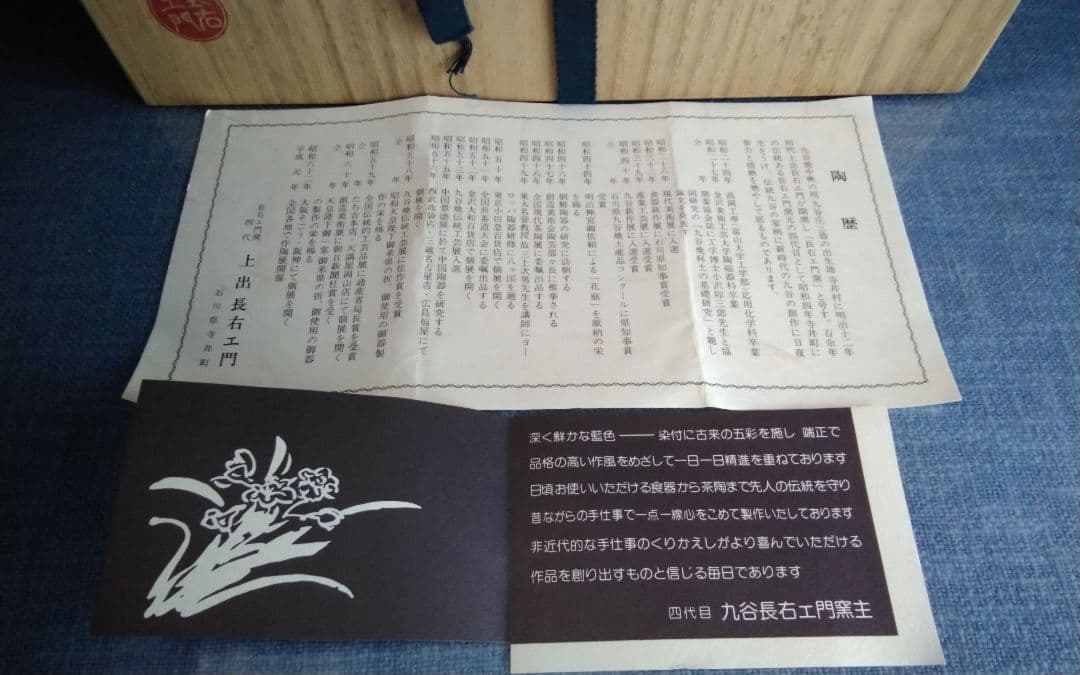 陶歴
九谷焼中興の祖九谷庄三翁の出生地寺井村に明治十二年
初代上出長右ヱ門が開窯し「長右ヱ門窯」と号す。百余年
の伝統ある長右ヱ門窯元の四代目として昭和四年寺井町に
生をうけ、伝統九谷の家柄に新時代の九谷の創作に日夜
努力と情熱を燃やして居るものであります。
昭和二十四年 高岡工専(富山大学工学部)応用化学科卒業
昭和二十五年 金沢美術工芸大学陶磁器科卒業
仝 年 窯業協会誌に工学博士小沢卯三郎先生と協
同研究の「九谷焼杯土の基礎研究」と題し
論文を発表す
昭和二十六年 現代美術展に入選
昭和三十二年 食器新作展に石川県知事賞受賞
九谷新作展に入選受賞
昭和四十年 石川県九谷焼生産品コンクールに県知事賞
受賞
昭和四十四年 明治神宮御依頼による「花瓶」を献納の栄
を賜る
昭和四十六年 朝鮮陶器の研究に訪朝する
昭和四十七年 創造美術会陶芸部々長に推挙される
昭和四十九年 全国現代茶陶展に委嘱出品する
東大名誉教授故三上次男先生を講師にヨー
ロッパ陶器研修に八ヶ国を廻る
昭和五十年 東京小田急百貨店で個展を開く
昭和五十一年 全国煎茶道大会に委嘱出品する
昭和五十二年 金沢大和百貨店で個展を開く
昭和五十三年 九谷焼伝統工芸展入選
昭和五十五年 中国景徳鎮に於て中国陶器を研究する
昭和五十六年 西武池袋店・三越名古屋店・広島福屋にて
個展を開く
昭和五十八年 九谷焼伝統工芸展に佳作賞を受賞
仝 年 昭和天皇陛下御来県の折、御使用の御器製
作の栄を賜る
昭和五十九年 全国伝統的工芸品展に通産省局長賞を受賞
仝 年 たち吉本店・天満屋岡山店にて個展を開く
昭和六十年 創造美術展に朝日新聞社賞を受く
仝 年 天皇陛下御一家御来県の折、御使用の御器
の製作の栄を賜る
昭和六十二年 大阪そごう・阪神にて個展を開く
平成元年 全国各地で作陶展開催
長右ヱ門窯
四代 上出長右ヱ門
石川県寺井町
深く鮮かな藍色――染付に古来の五彩を施し 端正で
品格の高い作風をめざして一日一日精進を重ねております
日頃お使いいただける食器から茶陶まで先人の伝統を守り
昔ながらの手仕事で一点一線心をこめて製作いたしております
非近代的な手仕事のくりかえしがより喜んでいただける
作品を創り出すものと信じる毎日であります
四代目 九谷長右ヱ門窯主